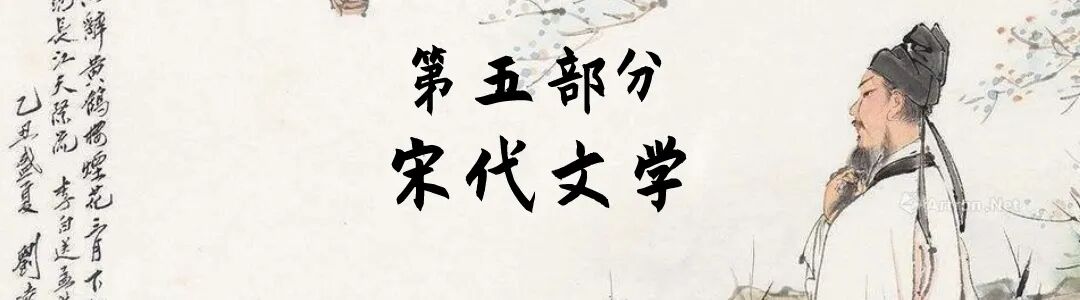 第五部分
宋代文学
辭黄鶴樓煙花三月下
長江天際流 李白送孟
乙丑盛夏 劉
Artron.Net